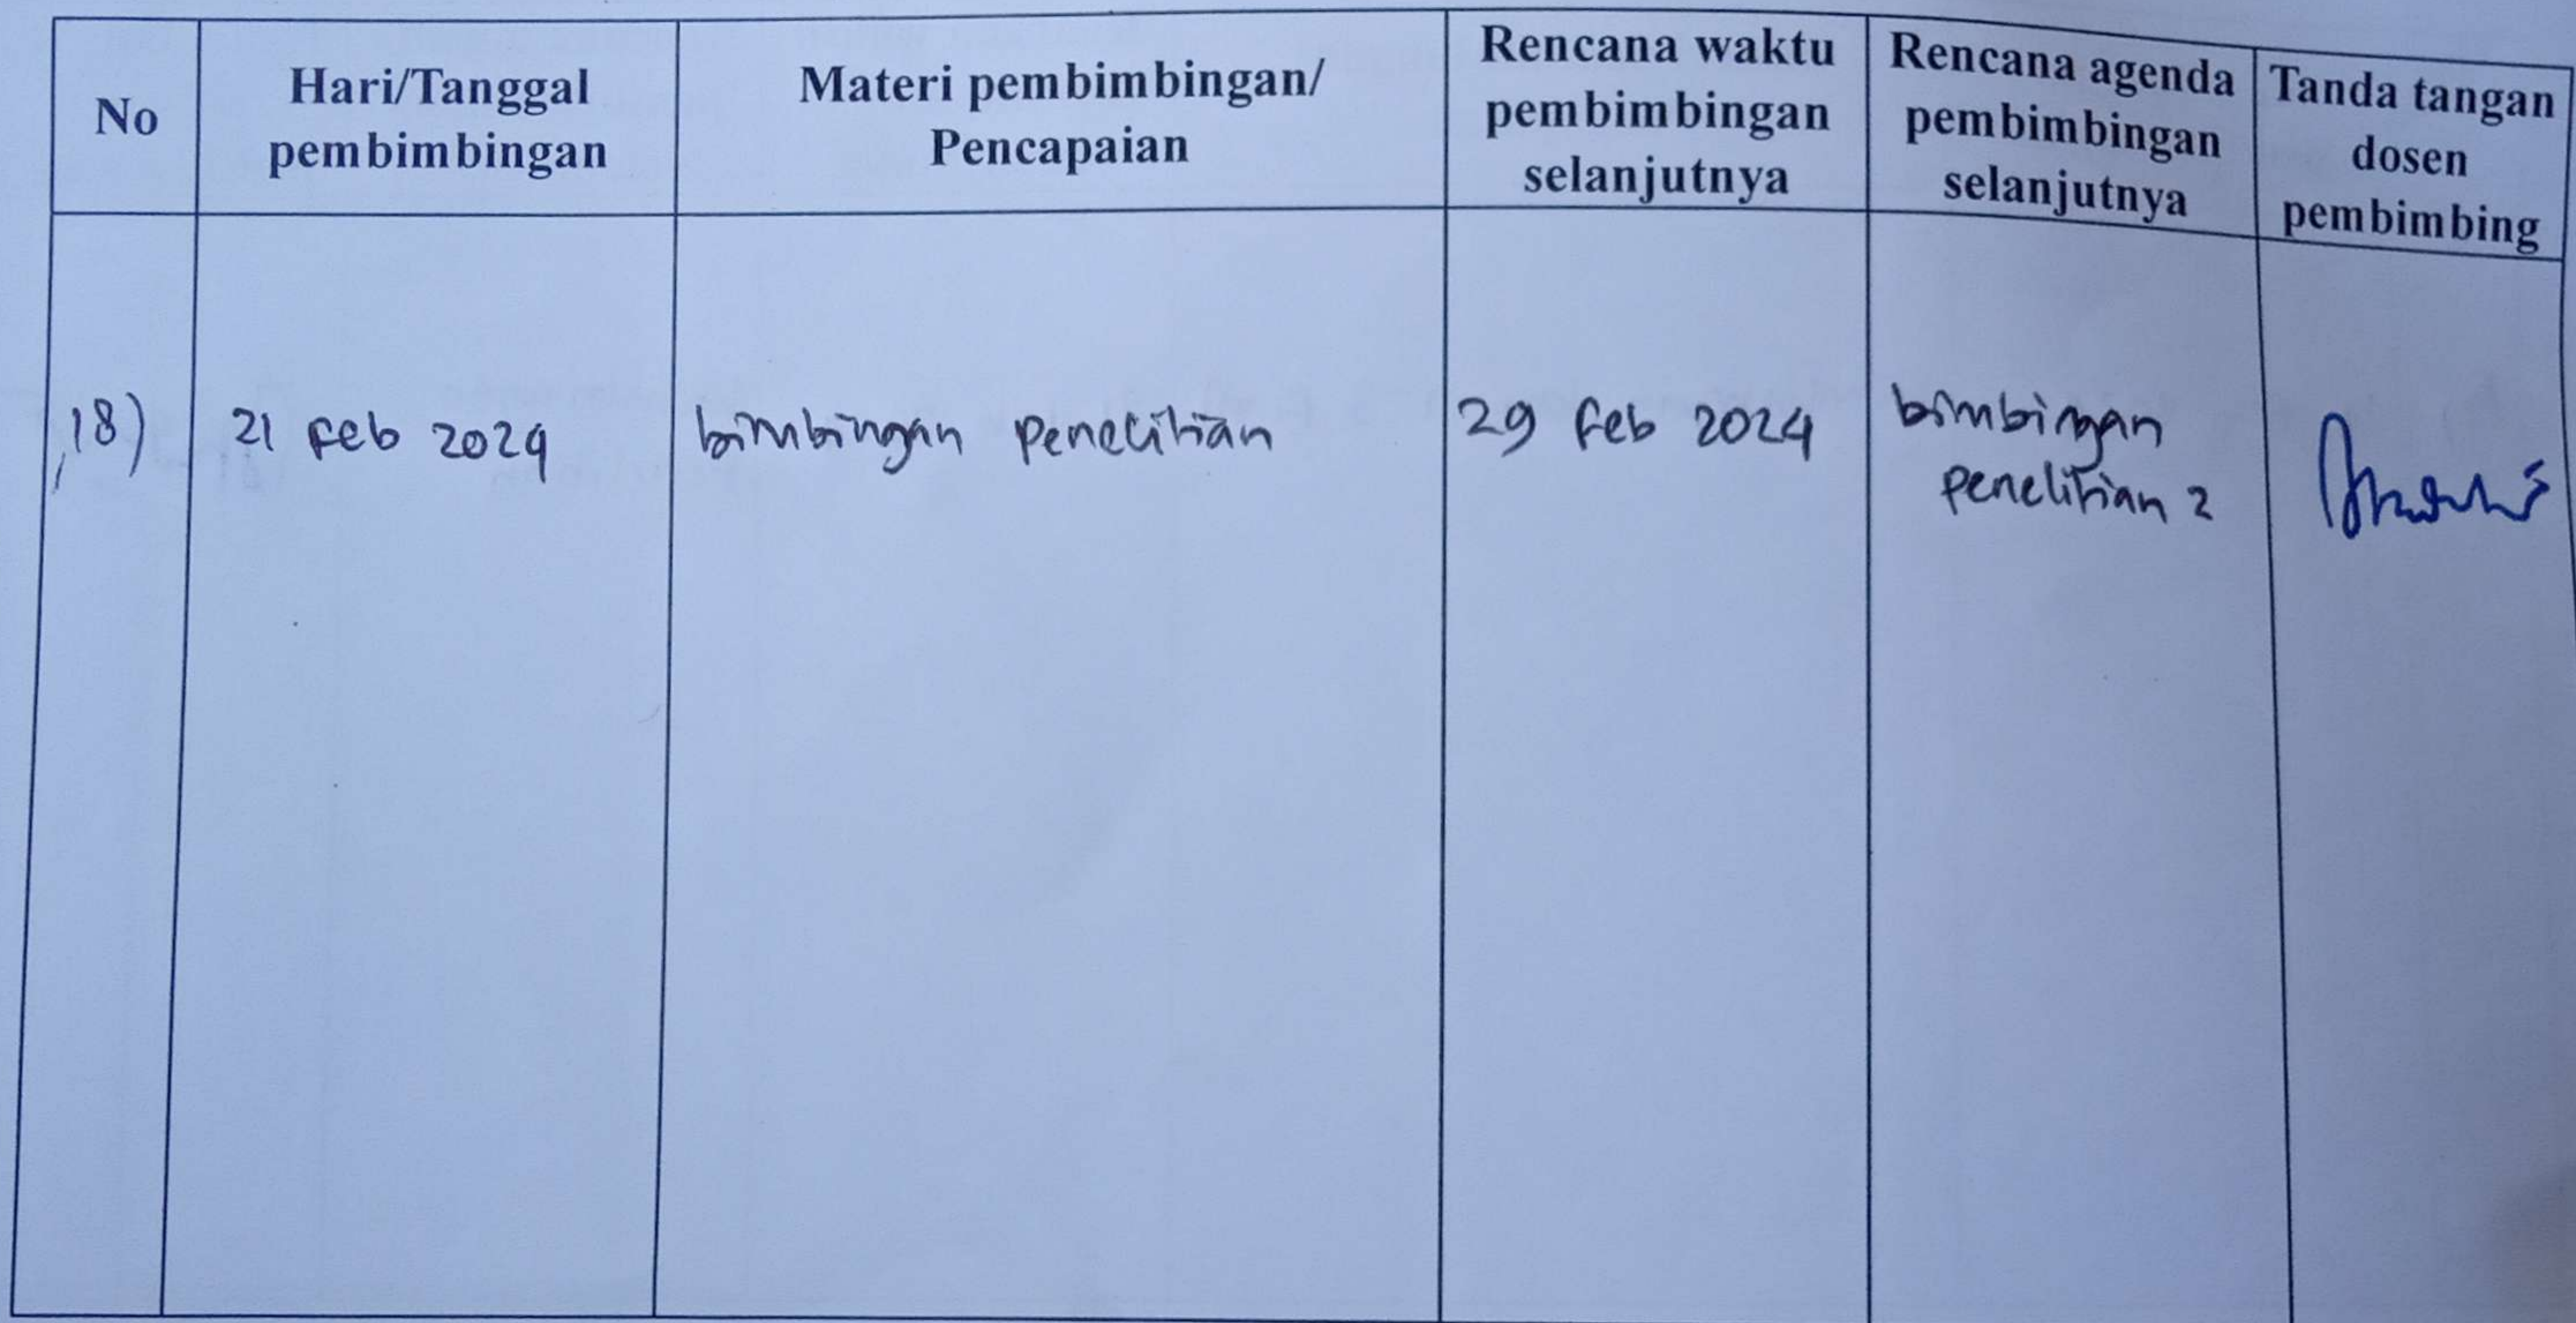 No
Hari/Tanggal
pembimbingan
Materi pembimbingan/
Pencapaian
Rencana waktu
pembimbingan
selanjutnya
Rencana agenda
pembimbingan
selanjutnya
Tanda tangan
dosen
pembimbing
18)
21 Feb 2024
bimbingan penelitian
29 Feb 2024
bimbingan
penelitian 2